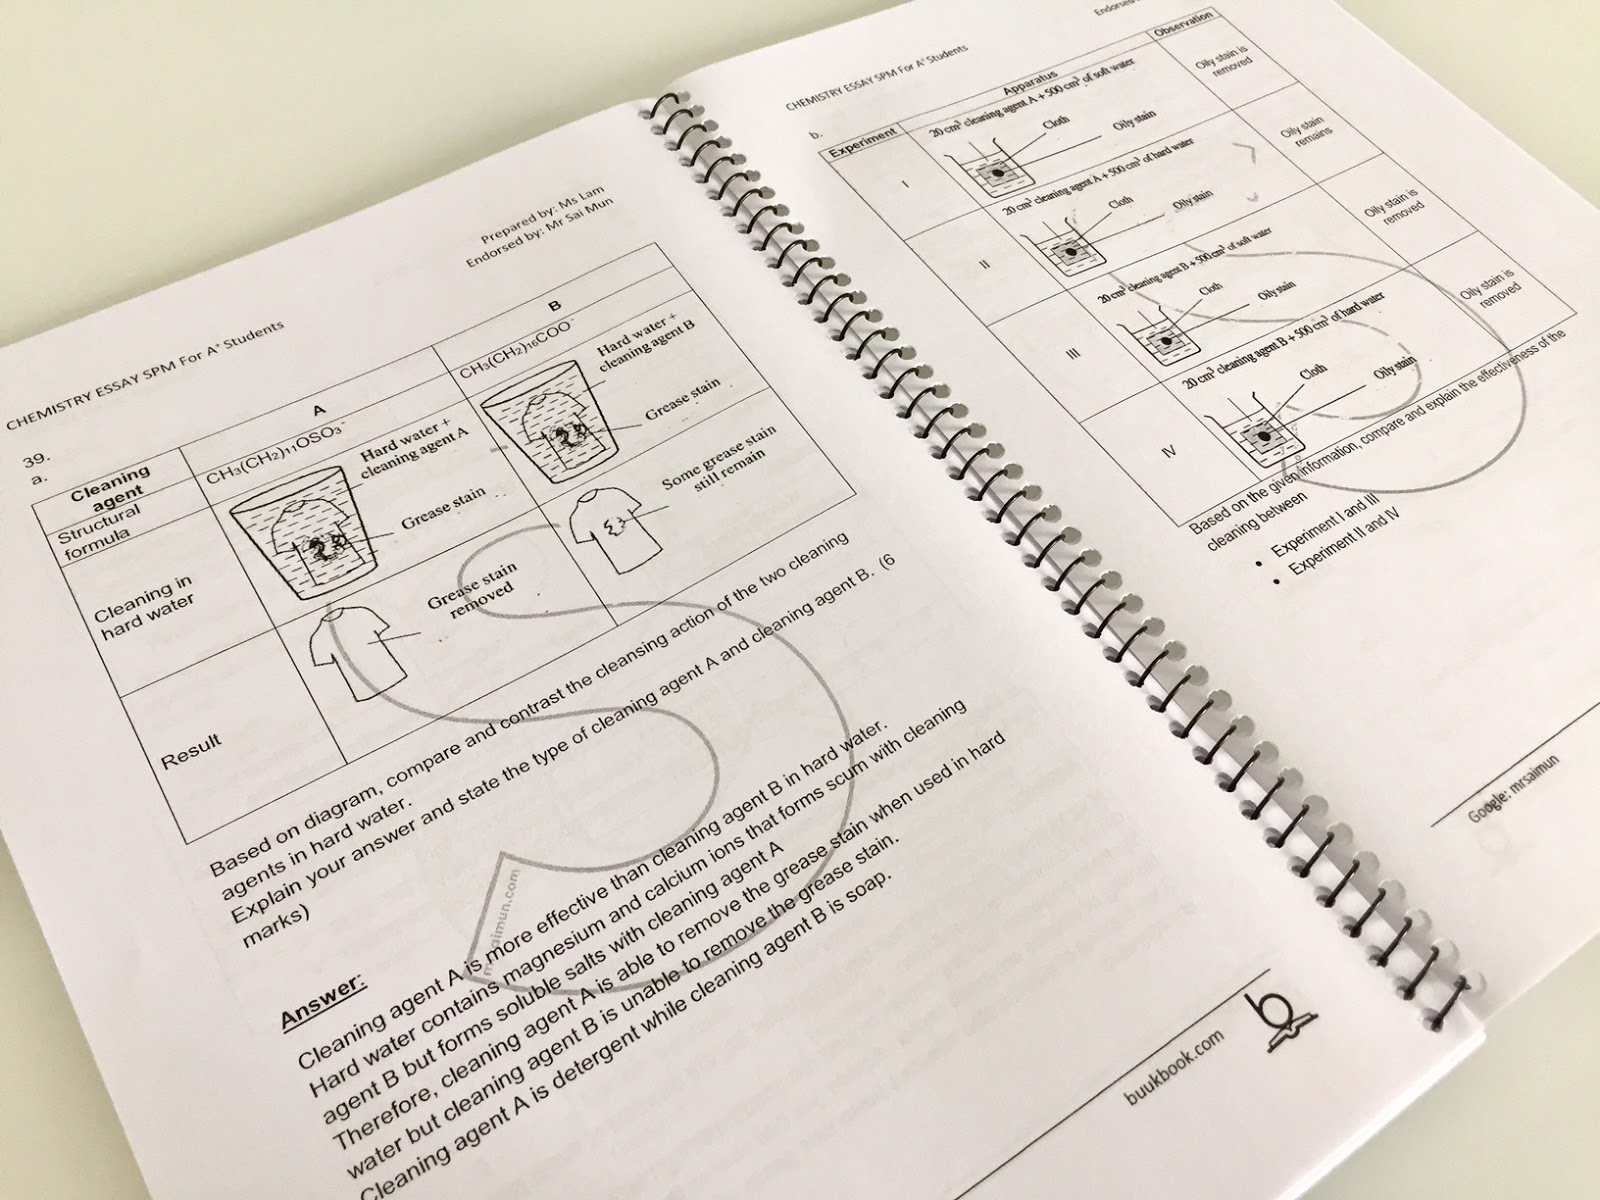 CHEMISTRY ESSAY SPM For A⁺ Students
Prepared by: Ms Lam
Endorsed by: Mr Sai Mun
39.
a.
Cleaning agent
A
B
Structural formula
CH₃(CH₂)₁₁OSO₃⁻
CH₃(CH₂)₁₆COO⁻
Cleaning in hard water
Hard water +
cleaning agent A
Grease stain
Hard water +
cleaning agent B
Grease stain
Result
Grease stain
removed
Some grease stain
still remain
Based on diagram, compare and contrast the cleansing action of the two cleaning
agents in hard water.
Explain your answer and state the type of cleaning agent A and cleaning agent B. (6
marks)
Answer:
Cleaning agent A is more effective than cleaning agent B in hard water.
Hard water contains magnesium and calcium ions that forms scum with cleaning
agent B but forms soluble salts with cleaning agent A
Therefore, cleaning agent A is able to remove the grease stain when used in hard
water but cleaning agent B is unable to remove the grease stain.
Cleaning agent A is detergent while cleaning agent B is soap.
buukbook.com
CHEMISTRY ESSAY SPM For A⁺ Students
b.
Experiment
Apparatus
Observation
I
20 cm³ cleaning agent A + 500 cm³ of soft water
Cloth
Oily stain
Oily stain is
removed
II
20 cm³ cleaning agent A + 500 cm³ of hard water
Cloth
Oily stain
Oily stain
remains
III
20 cm³ cleaning agent B + 500 cm³ of soft water
Cloth
Oily stain
Oily stain is
removed
IV
20 cm³ cleaning agent B + 500 cm³ of hard water
Cloth
Oily stain
Oily stain is
removed
Based on the given information, compare and explain the effectiveness of the
cleaning between
• Experiment I and III
• Experiment II and IV
Google: mrsaimun